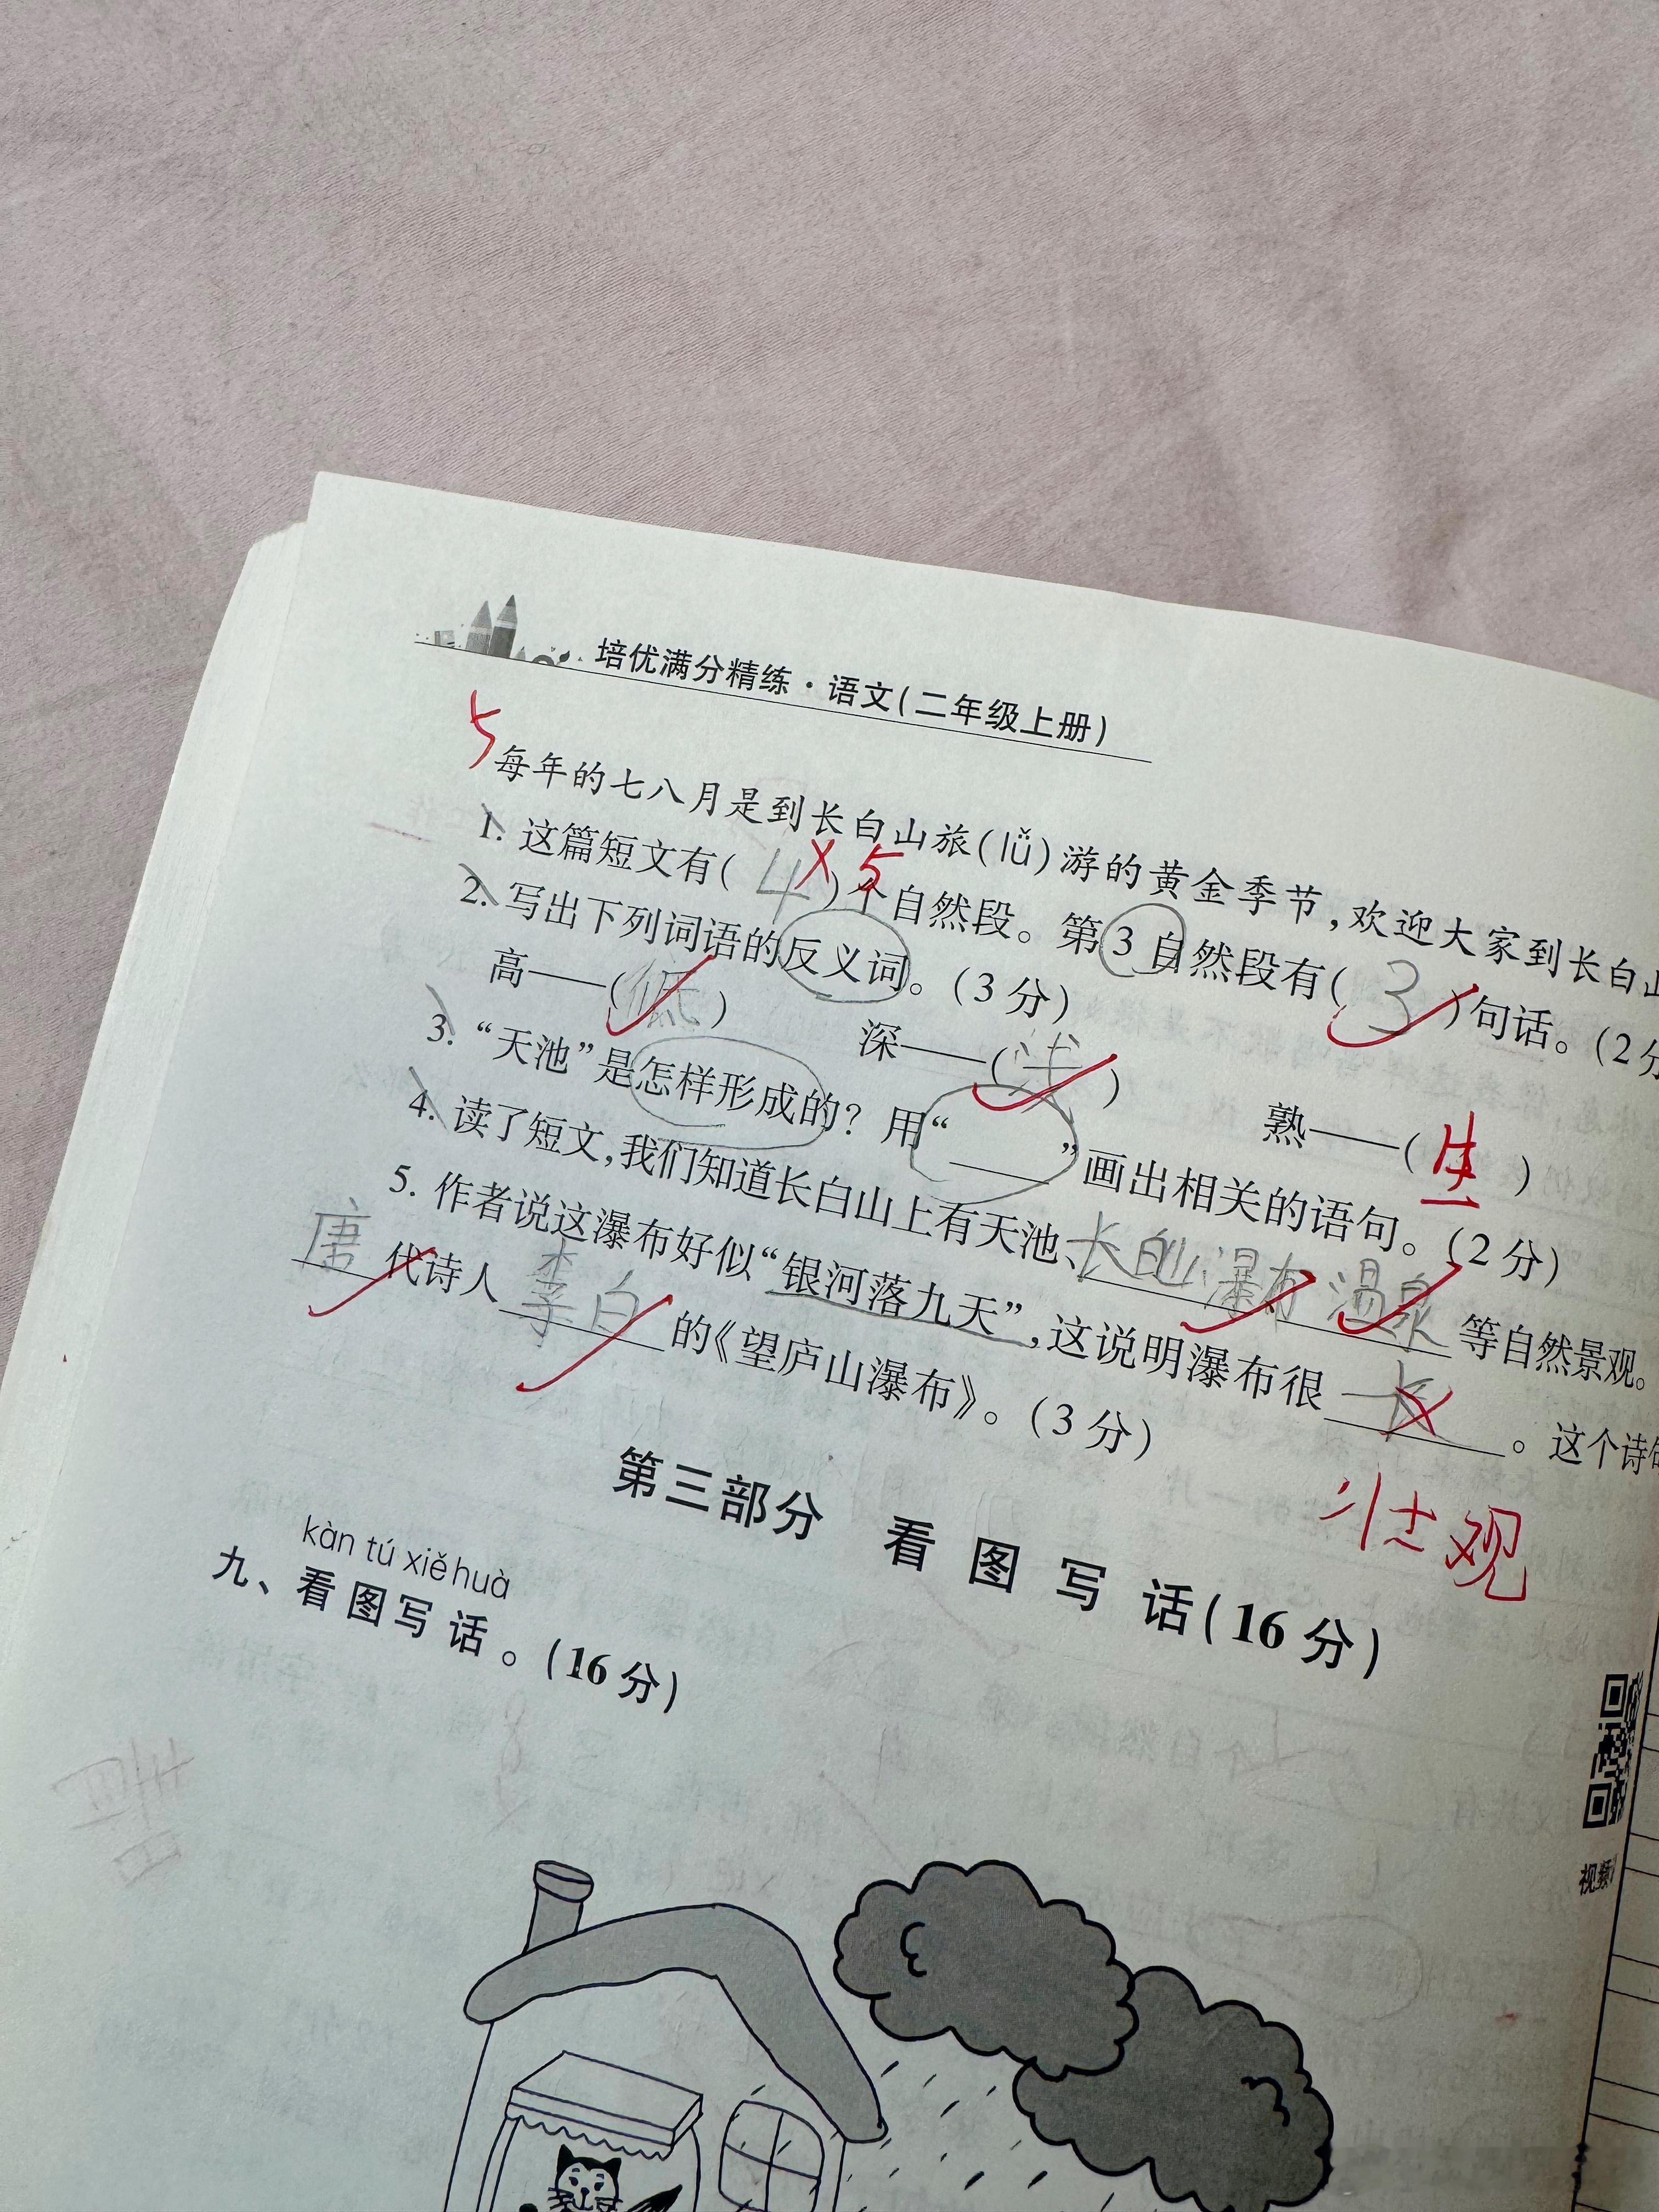 培优满分精练·语文(二年级上册)
5 每年的七八月是到长白山旅(lǚ)游的黄金季节,欢迎大家到长白山
1. 这篇短文有( 4 × )5个自然段。第3自然段有( 3 )句话。(2分
2. 写出下列词语的反义词。(3分)
高——(低) 深——(浅) 熟——(生)
3. “天池”是怎样形成的? 用“____”画出相关的语句。(2分)
4. 读了短文,我们知道长白山上有天池、长白山瀑布 温泉等自然景观。
5. 作者说这瀑布好似“银河落九天”,这说明瀑布很长×。这个诗
壮观
唐代诗人李白的《望庐山瀑布》。(3分)
第三部分 看图写话(16分)
kàn tú xiě huà
九、看图写话。(16分)
视频